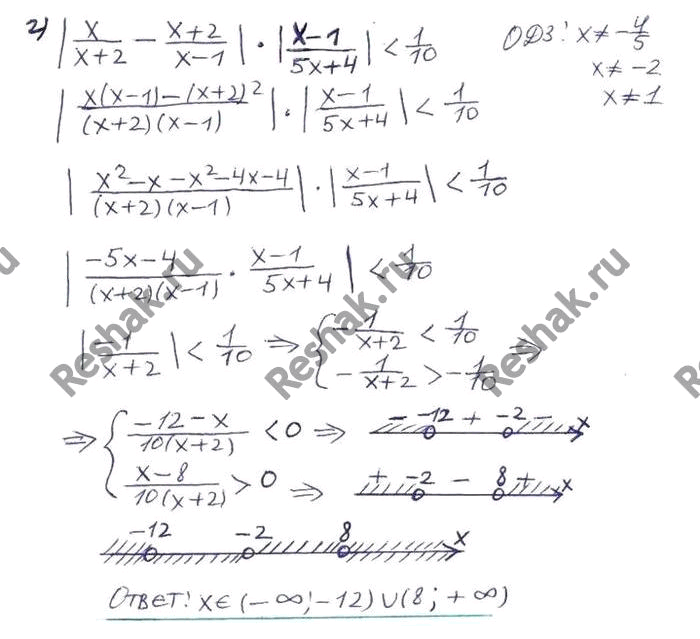 2) |x/(x+2) − (x+2)/(x−1)| · |(x−1)/(5x+4)| < 1/10 ОДЗ: x ≠ −4/5
x ≠ −2
|(x(x−1)−(x+2)²)/((x+2)(x−1))| · |(x−1)/(5x+4)| < 1/10 x ≠ 1
|(x²−x−x²−4x−4)/((x+2)(x−1))| · |(x−1)/(5x+4)| < 1/10
|(−5x−4)/((x+2)(x−1)) · (x−1)/(5x+4)| < 1/10
|−1/(x+2)| < 1/10 ⇒ { −1/(x+2) < 1/10
−1/(x+2) > −1/10 ⇒
⇒ { (−12−x)/(10(x+2)) < 0 ⇒ − −12 + −2 − x
(x−8)/(10(x+2)) > 0 ⇒ + −2 − 8 + x
−12 −2 8 x
Ответ: x∈(−∞; −12)∪(8; +∞)
Reshak.ru
Reshak.ru
Reshak.ru